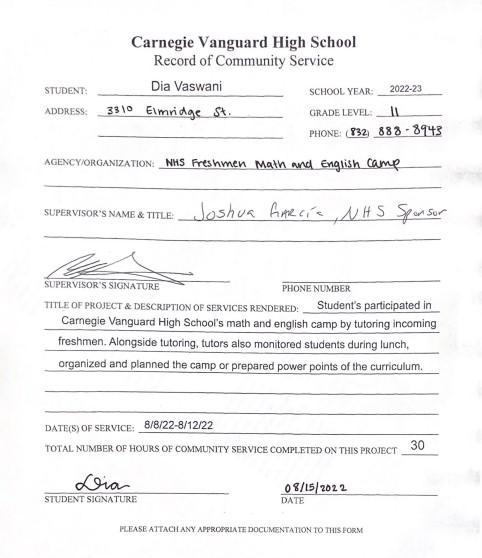 Carnegie Vanguard High School
Record of Community Service
STUDENT: Dia Vaswani SCHOOL YEAR: 2022-23
ADDRESS: 3310 Elmridge St. GRADE LEVEL: 11
PHONE: (832) 888-8943
AGENCY/ORGANIZATION: NHS Freshmen Math and English Camp
SUPERVISOR'S NAME & TITLE: Joshua Garcia, NHS Sponsor
SUPERVISOR'S SIGNATURE PHONE NUMBER
TITLE OF PROJECT & DESCRIPTION OF SERVICES RENDERED: Student's participated in
Carnegie Vanguard High School's math and english camp by tutoring incoming
freshmen. Alongside tutoring, tutors also monitored students during lunch,
organized and planned the camp or prepared power points of the curriculum.
DATE(S) OF SERVICE: 8/8/22-8/12/22
TOTAL NUMBER OF HOURS OF COMMUNITY SERVICE COMPLETED ON THIS PROJECT 30
Dia 08/15/2022
STUDENT SIGNATURE DATE
PLEASE ATTACH ANY APPROPRIATE DOCUMENTATION TO THIS FORM